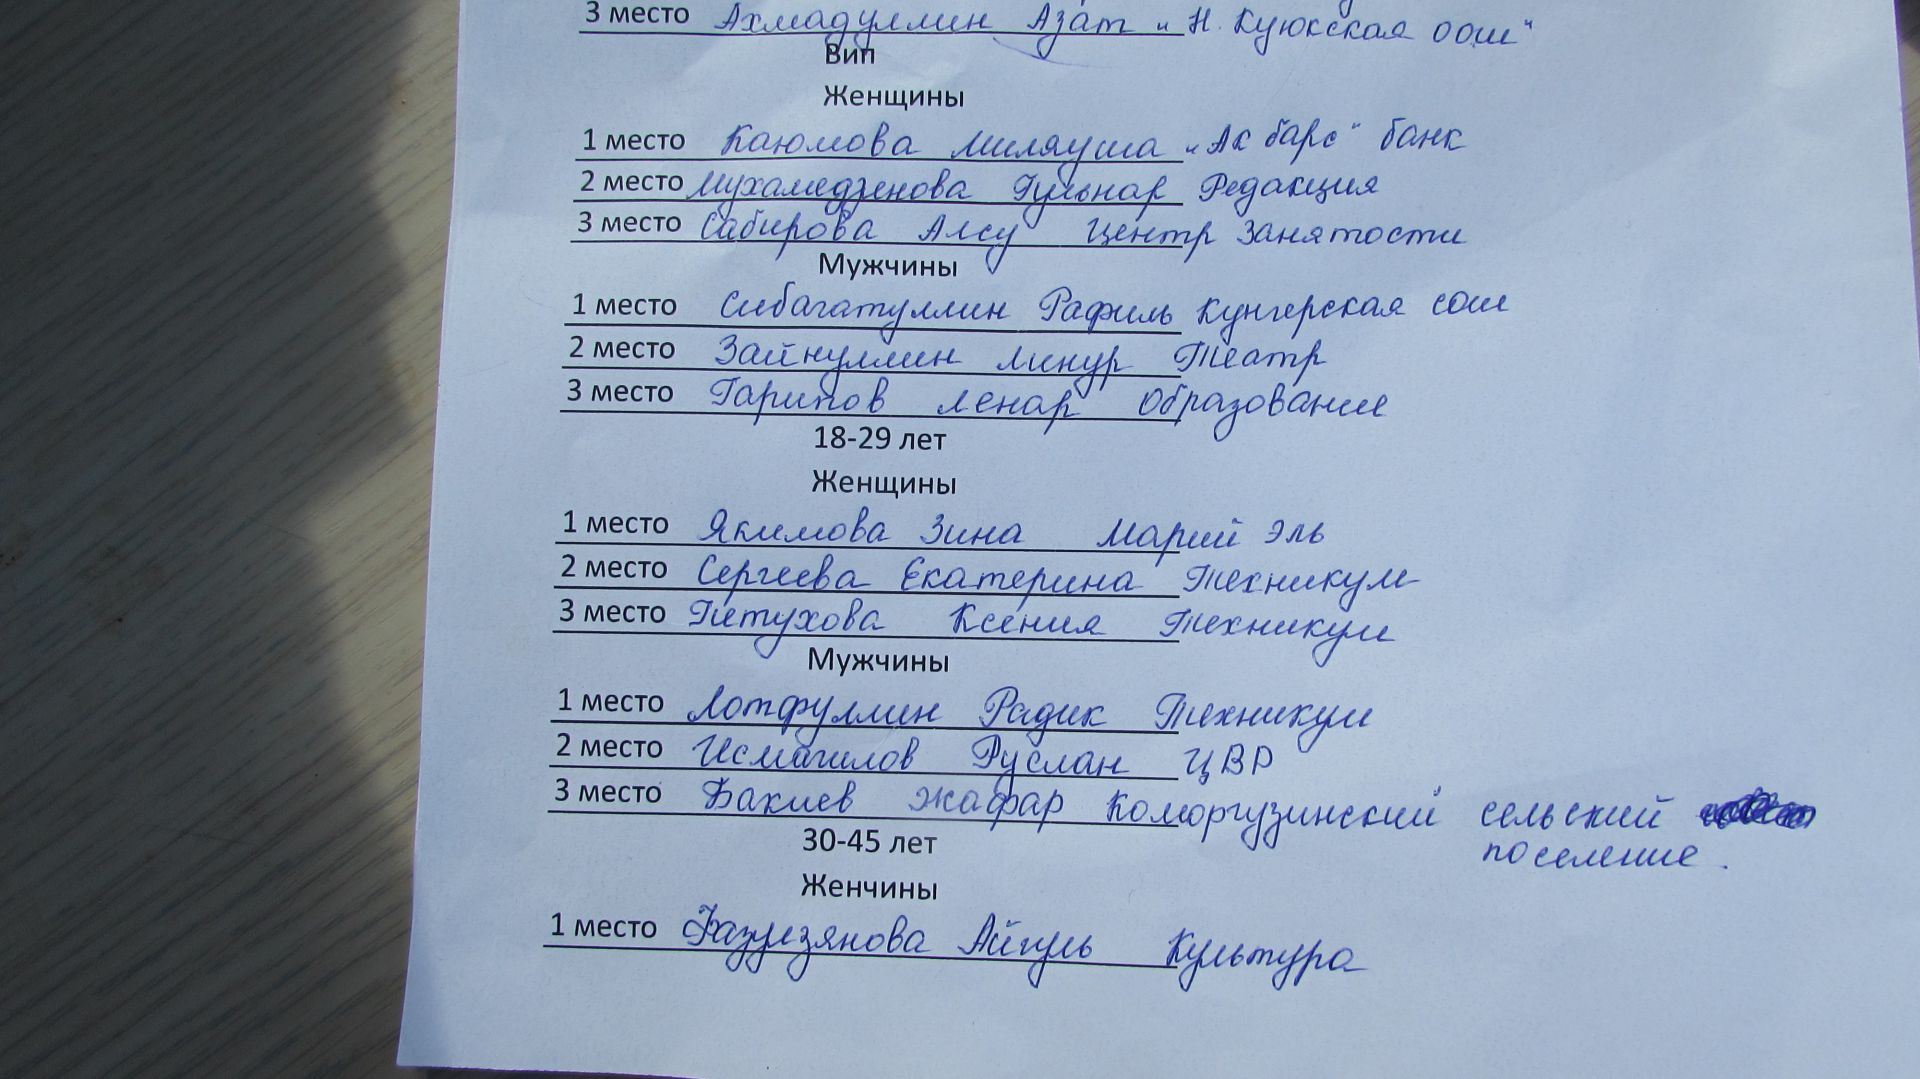 3 место Ахмадуллин Азат "Н. Куюкская оош"
Вип
Женщины
1 место Каюмова Миляуша "Ак барс" банк
2 место Мухамедзенова Гульнар Редакция
3 место Сабирова Алсу Центр занятости
Мужчины
1 место Сибагатуллин Рафиль Кунгерская сош
2 место Зайнуллин Линур Театр
3 место Гарипов Ленар Образование
18-29 лет
Женщины
1 место Якимова Зина Марий Эль
2 место Сергеева Екатерина Техникум
3 место Петухова Ксения Техникум
Мужчины
1 место Лотфуллин Радик Техникум
2 место Исмагилов Руслан ЦВР
3 место Бакиев Жафар Коморгузинский сельский
поселение.
30-45 лет
Женчины
1 место Фазулзянова Айгуль Культура